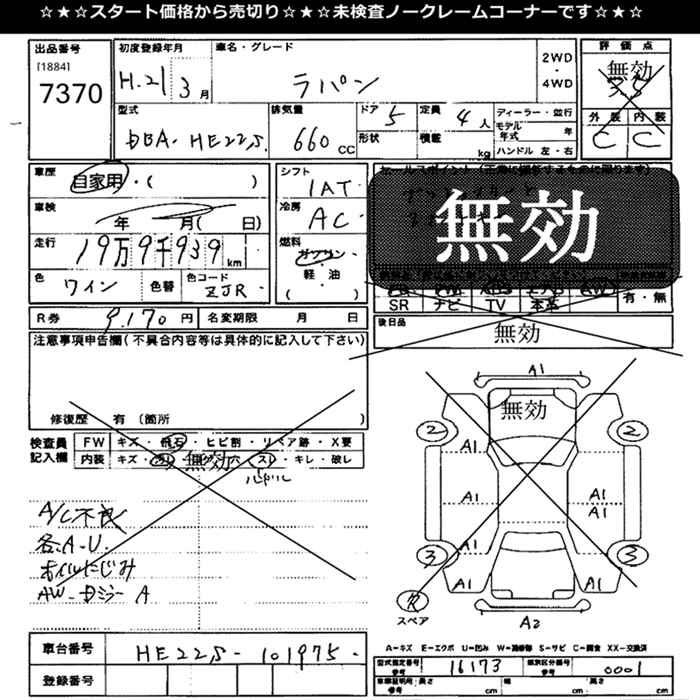 ☆★☆★スタート価格から売切り☆★☆★未検査ノークレームコーナーです☆★☆
出品番号
[1884]
7370
初度登録年月
H.21 3月
車名・グレード
ラパン
2WD
・
4WD
評価点
無効
3.5
外装 内装
C C
型式
DBA-HE22S.
排気量
660 CC
ドア 5
形状
定員 4人
積載 kg
ディーラー・並行
モデル年式 年
ハンドル 左・右
車歴
自家用・( )
車検
年 月( 日)
走行
19万9千939km
色 ワイン 色替
色コード ZJR
シフト
IAT
冷房
AC
燃料
ガソリン
軽・油
・( )
無効
SR ナビ TV 本革
有・無
R券 9,170円 名変期限 月 日
後日品
無効
注意事項申告欄(不具合内容等は具体的に記入して下さい)
修復歴 有(箇所 )
検査員記入欄
FW キズ・飛石・ヒビ割・リペア跡・X要
内装 キズ・無効・スレ・キレ・破レ
ハンドル
A/C不良
各.A-U.
オイルにじみ
AW-Dミラー A
A1
無効
2 2
A1
A1 A1
A1
A1
3 3
A1 A1
R
スペア
A2
A=キズ E=エクボ U=凹み W=補修跡 S=サビ C=腐食 XX=交換済
車台番号 HE22S-101975-
登録番号
型式指定番号 参考 16173
類別区分番号 参考 0001
車庫証明用 参考 長さ cm 幅 cm 高さ cm